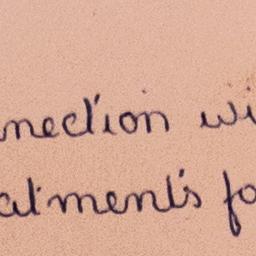 nnection wi
atments fo